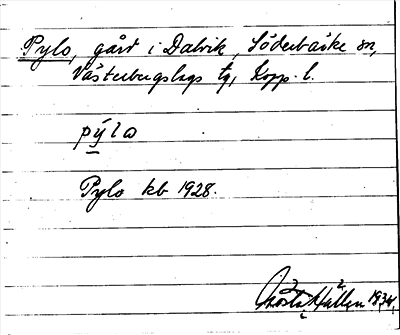 Pylo, gård i Dalvik, Söderbärke sn,
Västerbergslags tg, Kopp. l.
pýlo
Pylo kb 1928.
Gösta Hallen 1934.